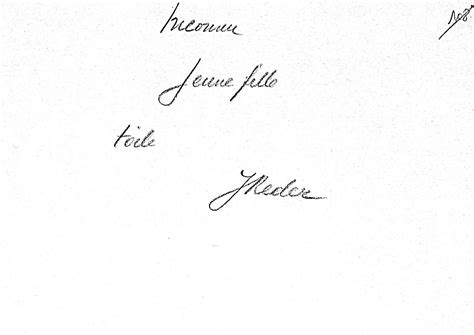 Inconnu
Jeune fille
toile
JReder